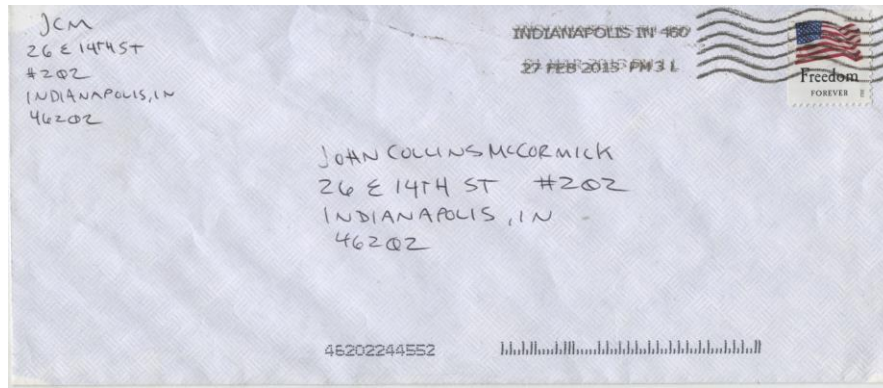 JCM
26 E 14TH ST
#202
INDIANAPOLIS, IN
46202
INDIANAPOLIS IN 460
27 FEB 2013 PM 3 L
Freedom
FOREVER
JOHN COLLINS MCCORMICK
26 E 14TH ST #202
INDIANAPOLIS, IN
46202
46202244552